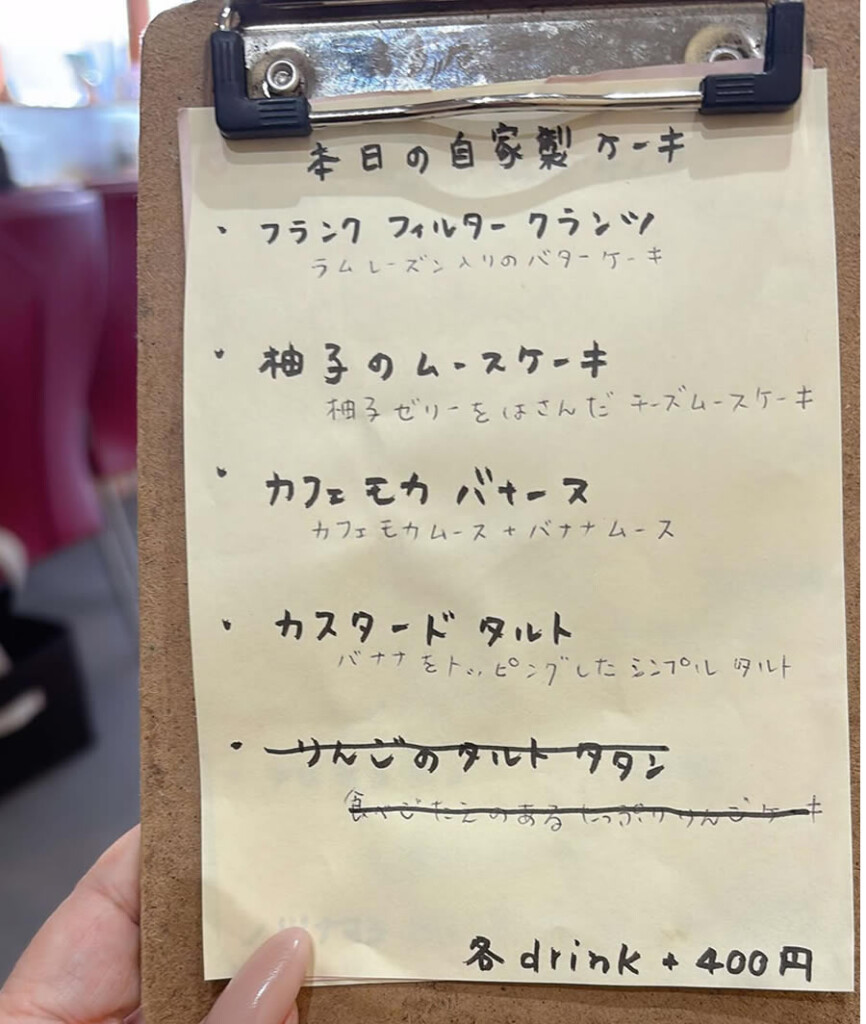 本日の自家製ケーキ
・フランク フィルター クランツ
ラムレーズン入りのバターケーキ
・柚子のムースケーキ
柚子ゼリーをはさんだ チーズムースケーキ
・カフェモカ バナーヌ
カフェモカムース+バナナムース
・カスタード タルト
バナナをトッピングした シンプル タルト
・りんごのタルト タタン
食べごたえのあるたっぷりりんごケーキ
各drink + 400円